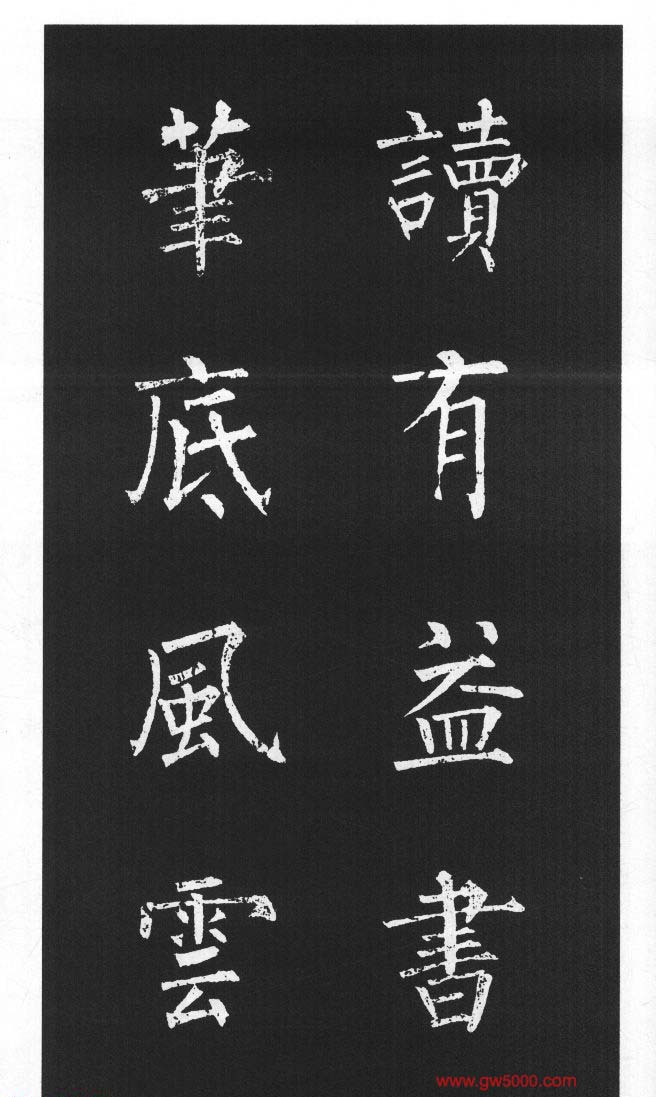 讀有益書
筆底風雲
www.gw5000.com